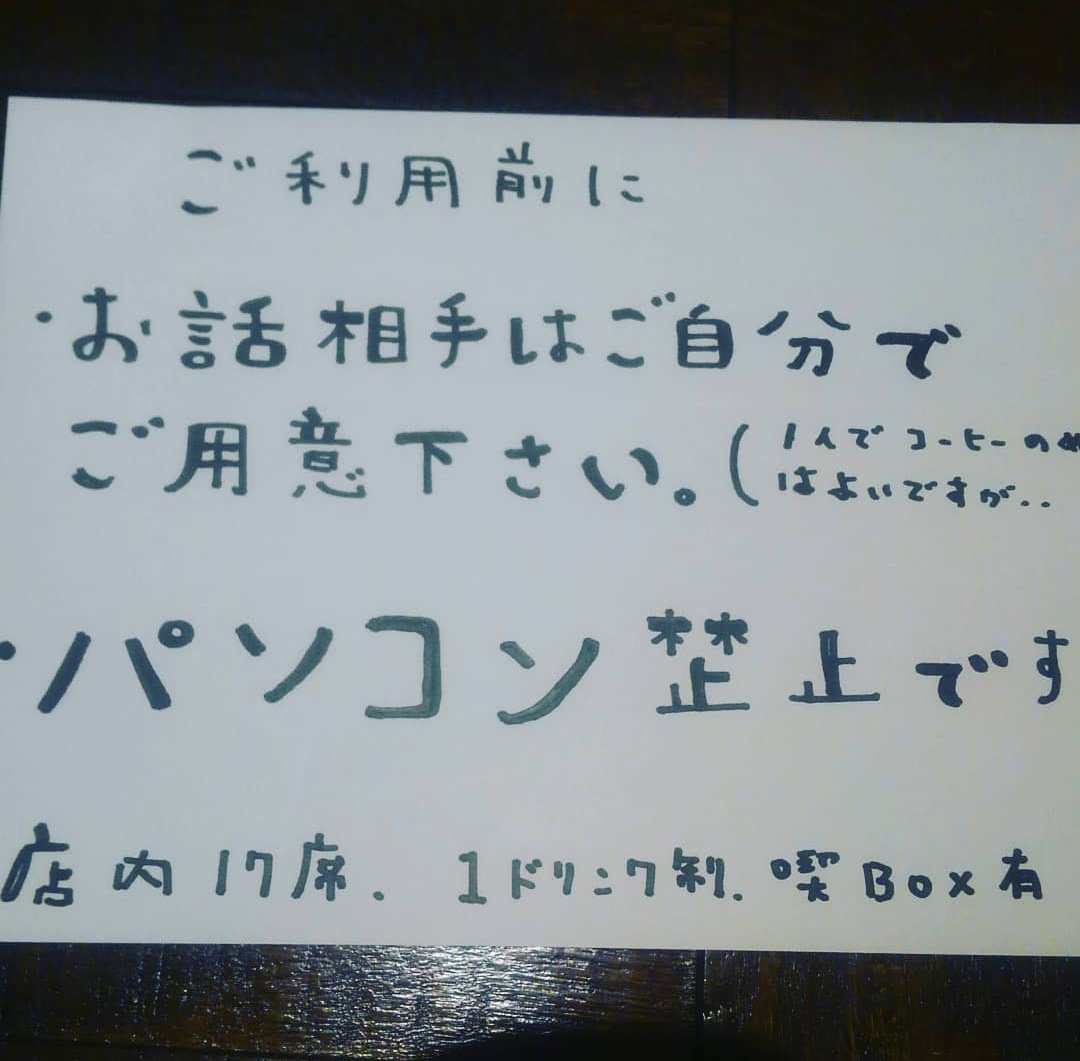 ご利用前に
・お話相手はご自分で
ご用意下さい。(1人でコーヒーのむ
はよいですが..
・パソコン禁止です
店内17席. 1ドリンク制. 喫Box有